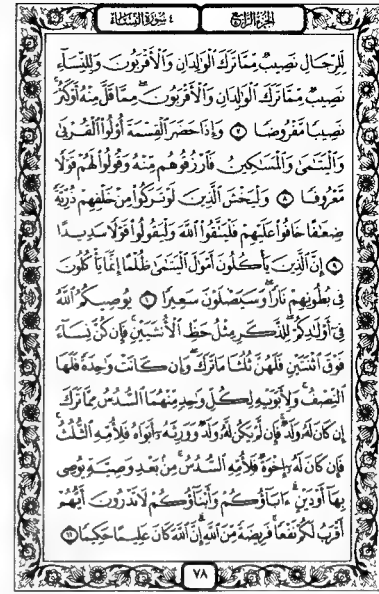 الجزء الرابع
٤ سورة النساء
لِّلرِّجَالِ نَصِيبٌ مِّمَّا تَرَكَ الْوَالِدَانِ وَالْأَقْرَبُونَ وَلِلنِّسَاءِ
نَصِيبٌ مِّمَّا تَرَكَ الْوَالِدَانِ وَالْأَقْرَبُونَ مِمَّا قَلَّ مِنْهُ أَوْ كَثُرَ
نَصِيبًا مَّفْرُوضًا ٧ وَإِذَا حَضَرَ الْقِسْمَةَ أُولُوا الْقُرْبَىٰ
وَالْيَتَامَىٰ وَالْمَسَاكِينُ فَارْزُقُوهُم مِّنْهُ وَقُولُوا لَهُمْ قَوْلًا
مَّعْرُوفًا ٨ وَلْيَخْشَ الَّذِينَ لَوْ تَرَكُوا مِنْ خَلْفِهِمْ ذُرِّيَّةً
ضِعَافًا خَافُوا عَلَيْهِمْ فَلْيَتَّقُوا اللَّهَ وَلْيَقُولُوا قَوْلًا سَدِيدًا
٩ إِنَّ الَّذِينَ يَأْكُلُونَ أَمْوَالَ الْيَتَامَىٰ ظُلْمًا إِنَّمَا يَأْكُلُونَ
فِي بُطُونِهِمْ نَارًا وَسَيَصْلَوْنَ سَعِيرًا ١٠ يُوصِيكُمُ اللَّهُ
فِي أَوْلَادِكُمْ لِلذَّكَرِ مِثْلُ حَظِّ الْأُنثَيَيْنِ فَإِن كُنَّ نِسَاءً
فَوْقَ اثْنَتَيْنِ فَلَهُنَّ ثُلُثَا مَا تَرَكَ وَإِن كَانَتْ وَاحِدَةً فَلَهَا
النِّصْفُ وَلِأَبَوَيْهِ لِكُلِّ وَاحِدٍ مِّنْهُمَا السُّدُسُ مِمَّا تَرَكَ
إِن كَانَ لَهُ وَلَدٌ فَإِن لَّمْ يَكُن لَّهُ وَلَدٌ وَوَرِثَهُ أَبَوَاهُ فَلِأُمِّهِ الثُّلُثُ
فَإِن كَانَ لَهُ إِخْوَةٌ فَلِأُمِّهِ السُّدُسُ مِن بَعْدِ وَصِيَّةٍ يُوصِي
بِهَا أَوْ دَيْنٍ آبَاؤُكُمْ وَأَبْنَاؤُكُمْ لَا تَدْرُونَ أَيُّهُمْ
أَقْرَبُ لَكُمْ نَفْعًا فَرِيضَةً مِّنَ اللَّهِ إِنَّ اللَّهَ كَانَ عَلِيمًا حَكِيمًا ١١
٧٨